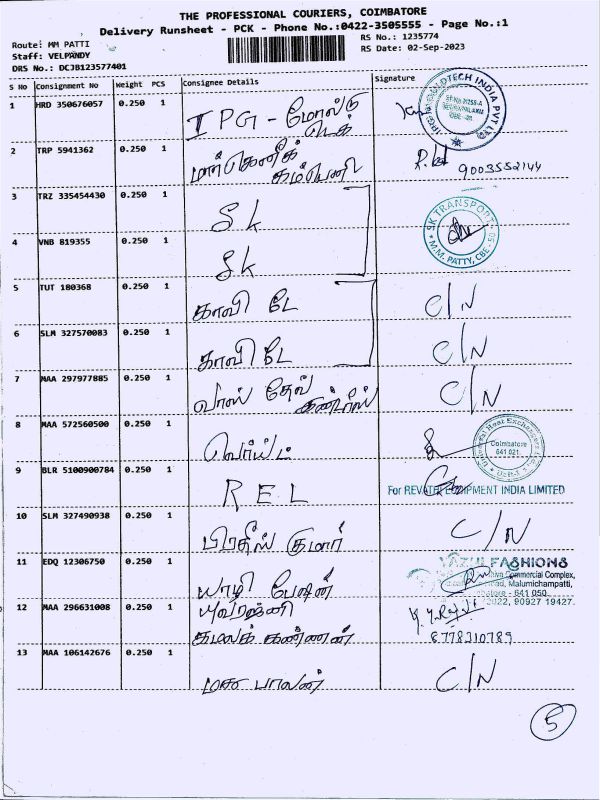 THE PROFESSIONAL COURIERS, COIMBATORE
Delivery Runsheet - PCK - Phone No.:0422-3505555 - Page No.:1
Route: MM PATTI
RS No.: 1235774
Staff: VELPANDY
RS Date: 02-Sep-2023
DRS No.: DCJB123577401
S No Consignment No Weight PCS Consignee Details Signature
1 HRD 350676057 0.250 1 IPG - மோல்டு டெக்
2 TRP 5941362 0.250 1 மார்கெனிக் கம்பெனி 9003552144
3 TRZ 335454430 0.250 1 SK
SK TRANSPORT M.M. PATTY, CBE-50
4 VNB 819355 0.250 1 SK
5 TUT 180368 0.250 1 காவி டே C/N
6 SLM 327570083 0.250 1 காவி டே C/N
7 MAA 297977885 0.250 1 வாஸ் தேவ் C/N
8 MAA 572560500 0.250 1
Coimbatore
641 021
9 BLR 5100900784 0.250 1 REL
For REVATHI EQUIPMENT INDIA LIMITED
10 SLM 327490938 0.250 1 பிரதீஸ் குமார் C/N
11 EDQ 12306750 0.250 1 யாழி பேஷன்
YAZHI FASHIONS
Commercial Complex,
Malumichampatti,
641 050
90927 19427.
12 MAA 296631008 0.250 1 யுவராணி
கமலக் கண்ணன் 8778310789
13 MAA 106142676 0.250 1 பாலன் C/N
5